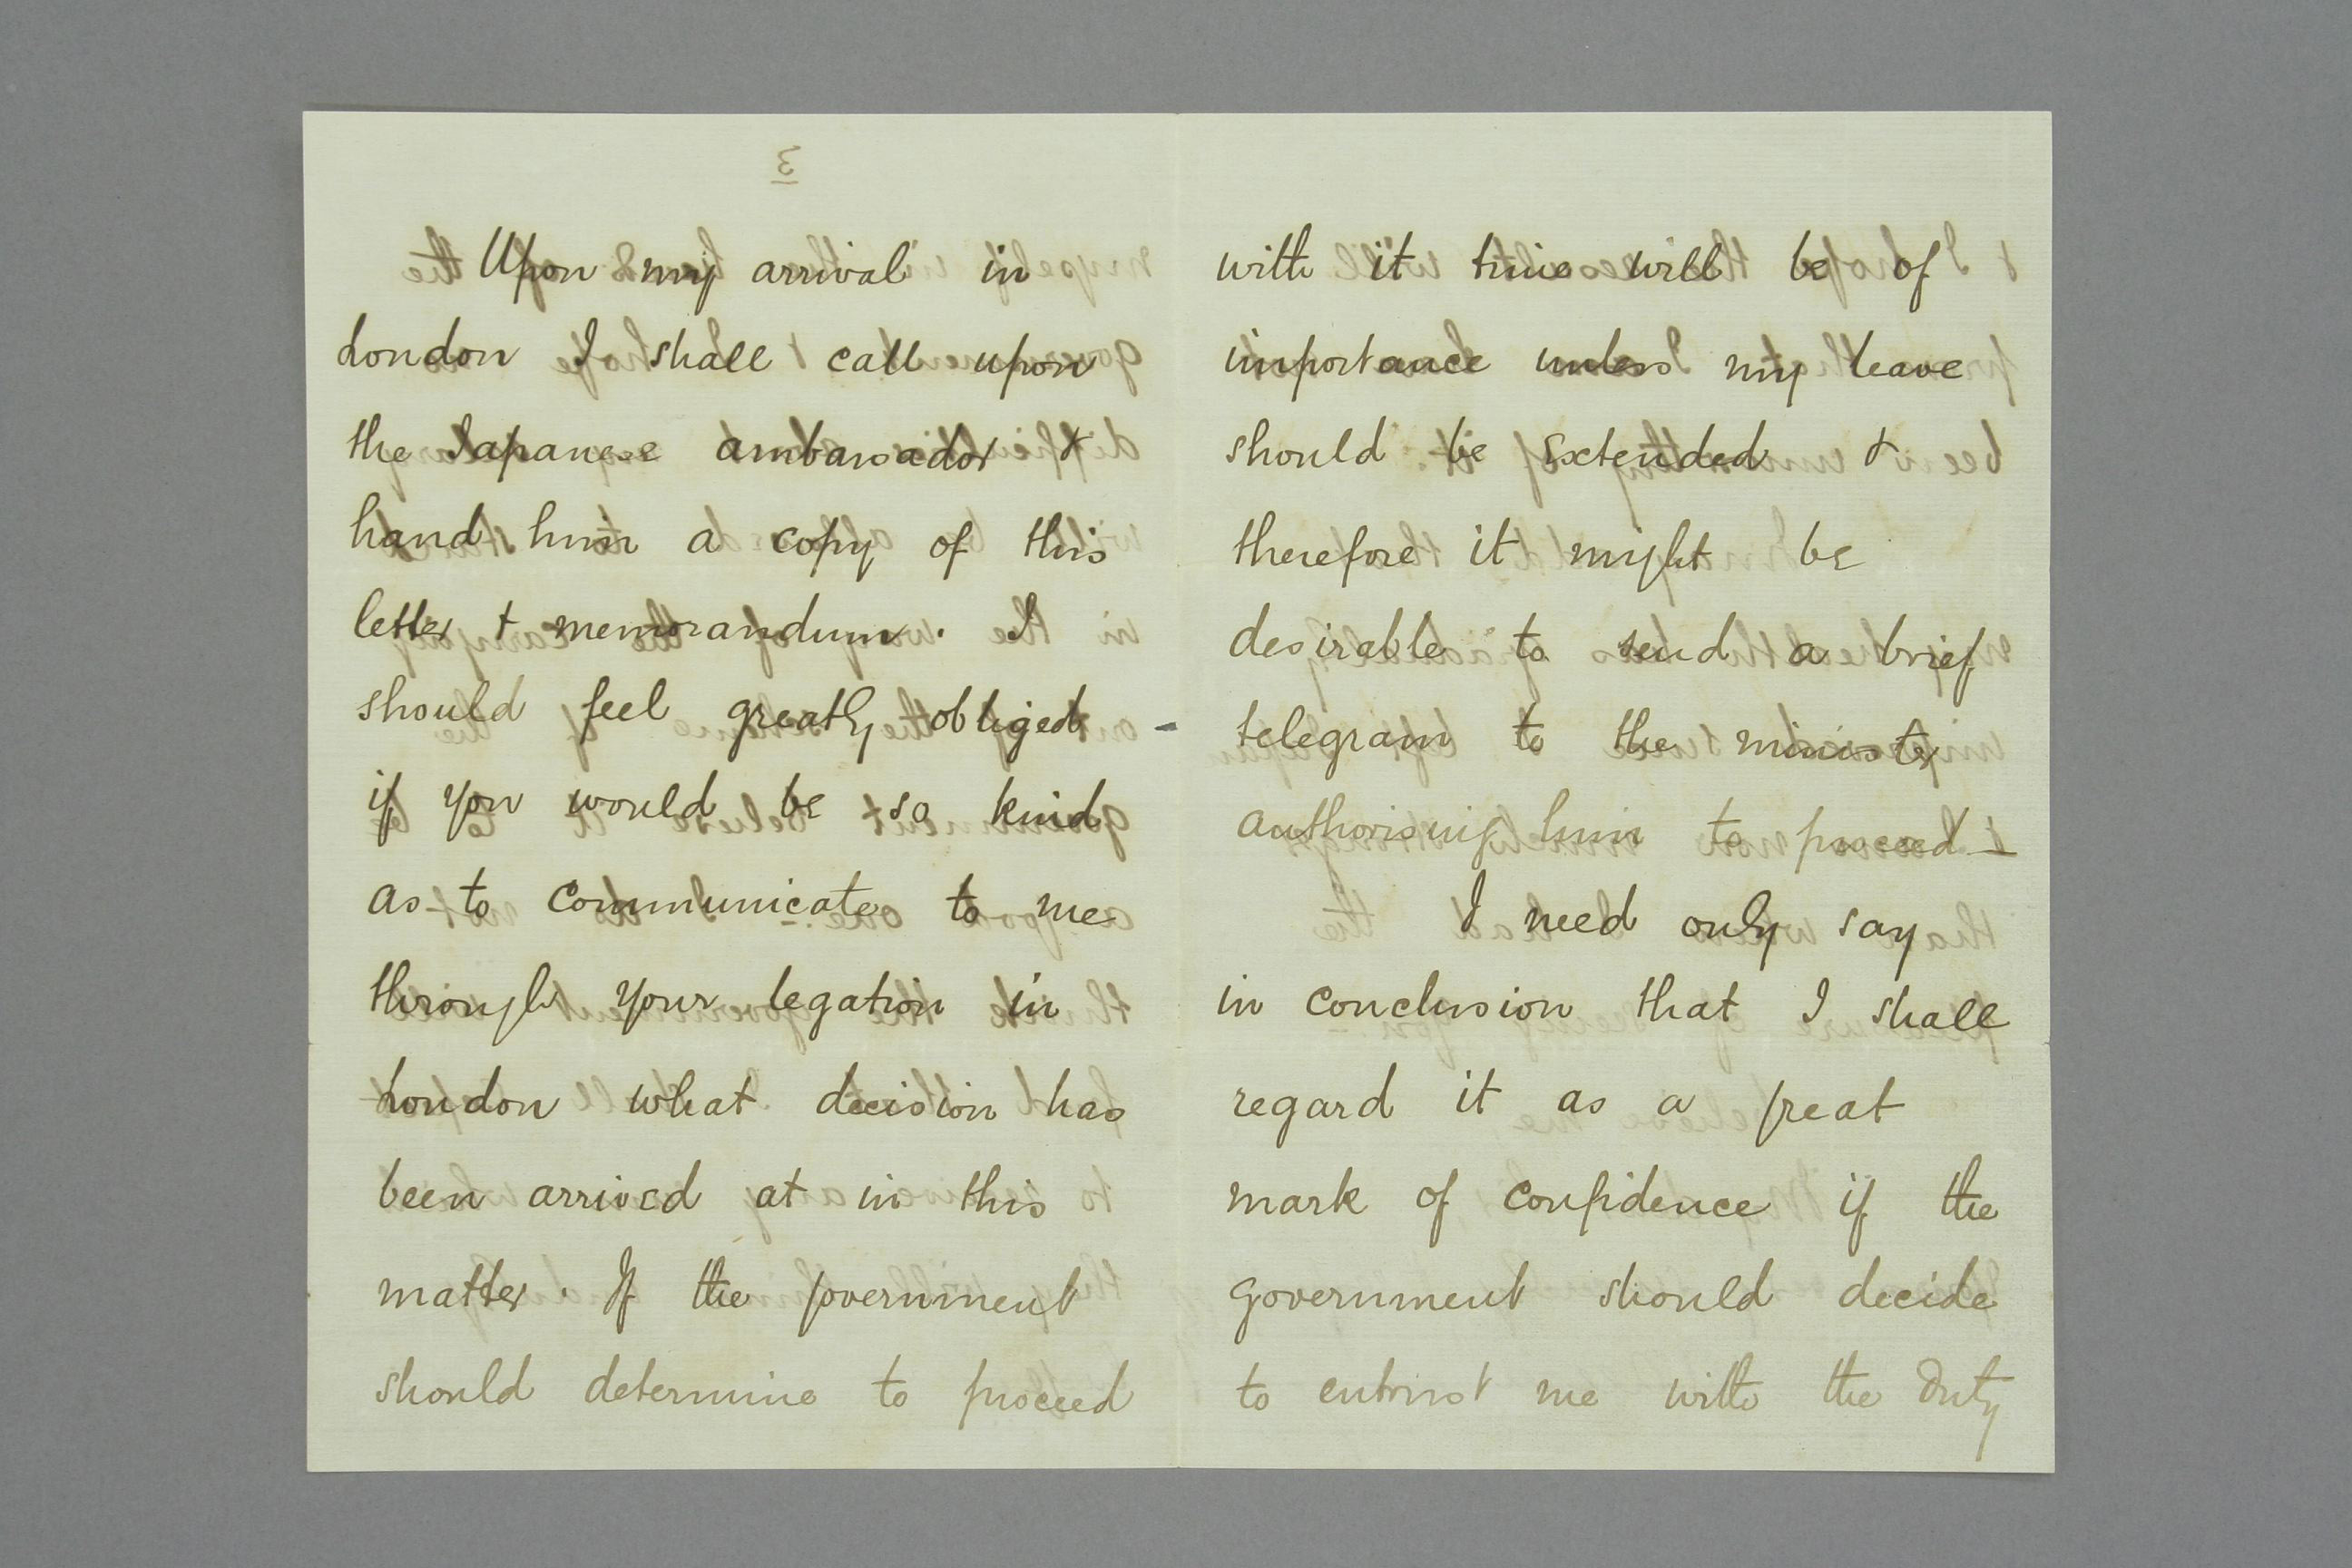 Upon my arrival in
London I shall call upon
the Japanese ambassador &
hand him a copy of this
letter & memorandum. I
should feel greatly obliged -
if you would be so kind
as to communicate to me
through your legation in
London what decision has
been arrived at in this
matter. If the government
should determine to proceed
with it time will be of
importance unless my leave
should be extended &
therefore it might be
desirable to send a brief
telegram to the minister
authorising him to proceed -
I need only say
in conclusion that I shall
regard it as a great
mark of confidence if the
government should decide
to entrust me with the duty